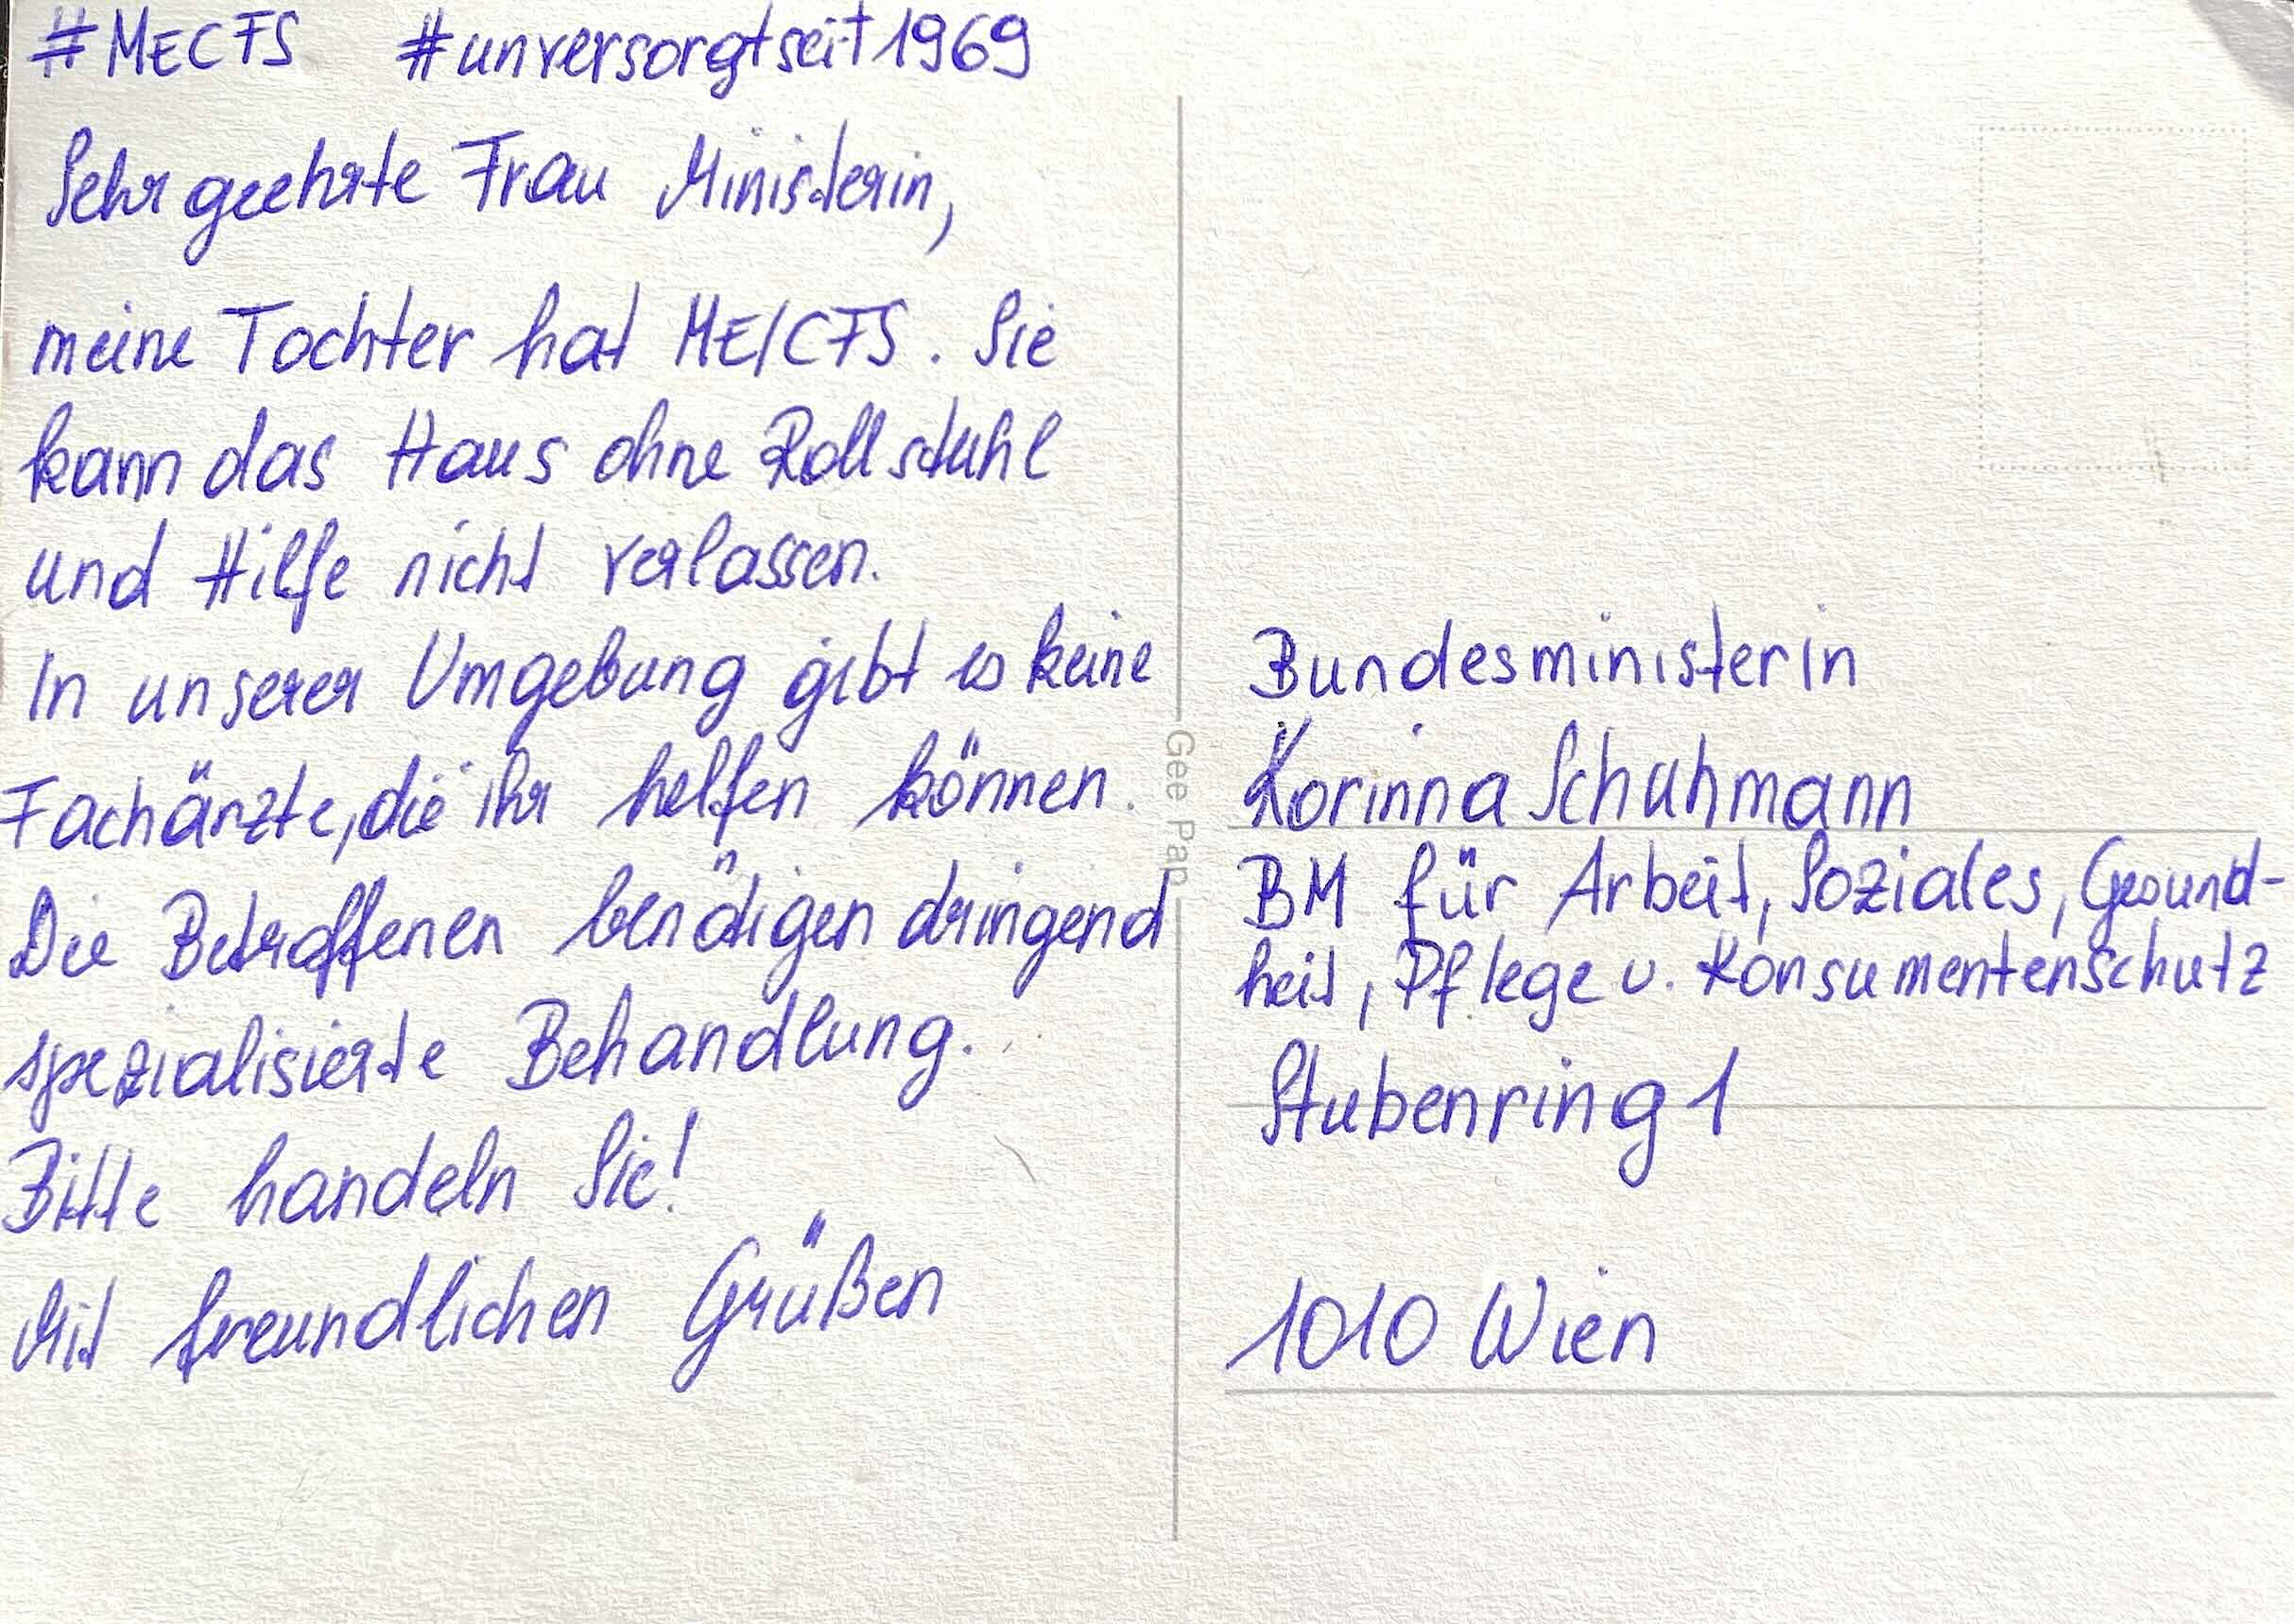 #MECFS #unversorgtseit1969
Sehr geehrte Frau Ministerin,
meine Tochter hat ME/CFS. Sie
kann das Haus ohne Rollstuhl
und Hilfe nicht verlassen.
In unserer Umgebung gibt es keine
Fachärzte, die ihr helfen können.
Die Betroffenen benötigen dringend
spezialisierte Behandlung.
Bitte handeln Sie!
Mit freundlichen Grüßen
Gee Pap
Bundesministerin
Korinna Schuhmann
BM für Arbeit, Soziales, Gesund-
heit, Pflege u. Konsumentenschutz
Stubenring 1
1010 Wien